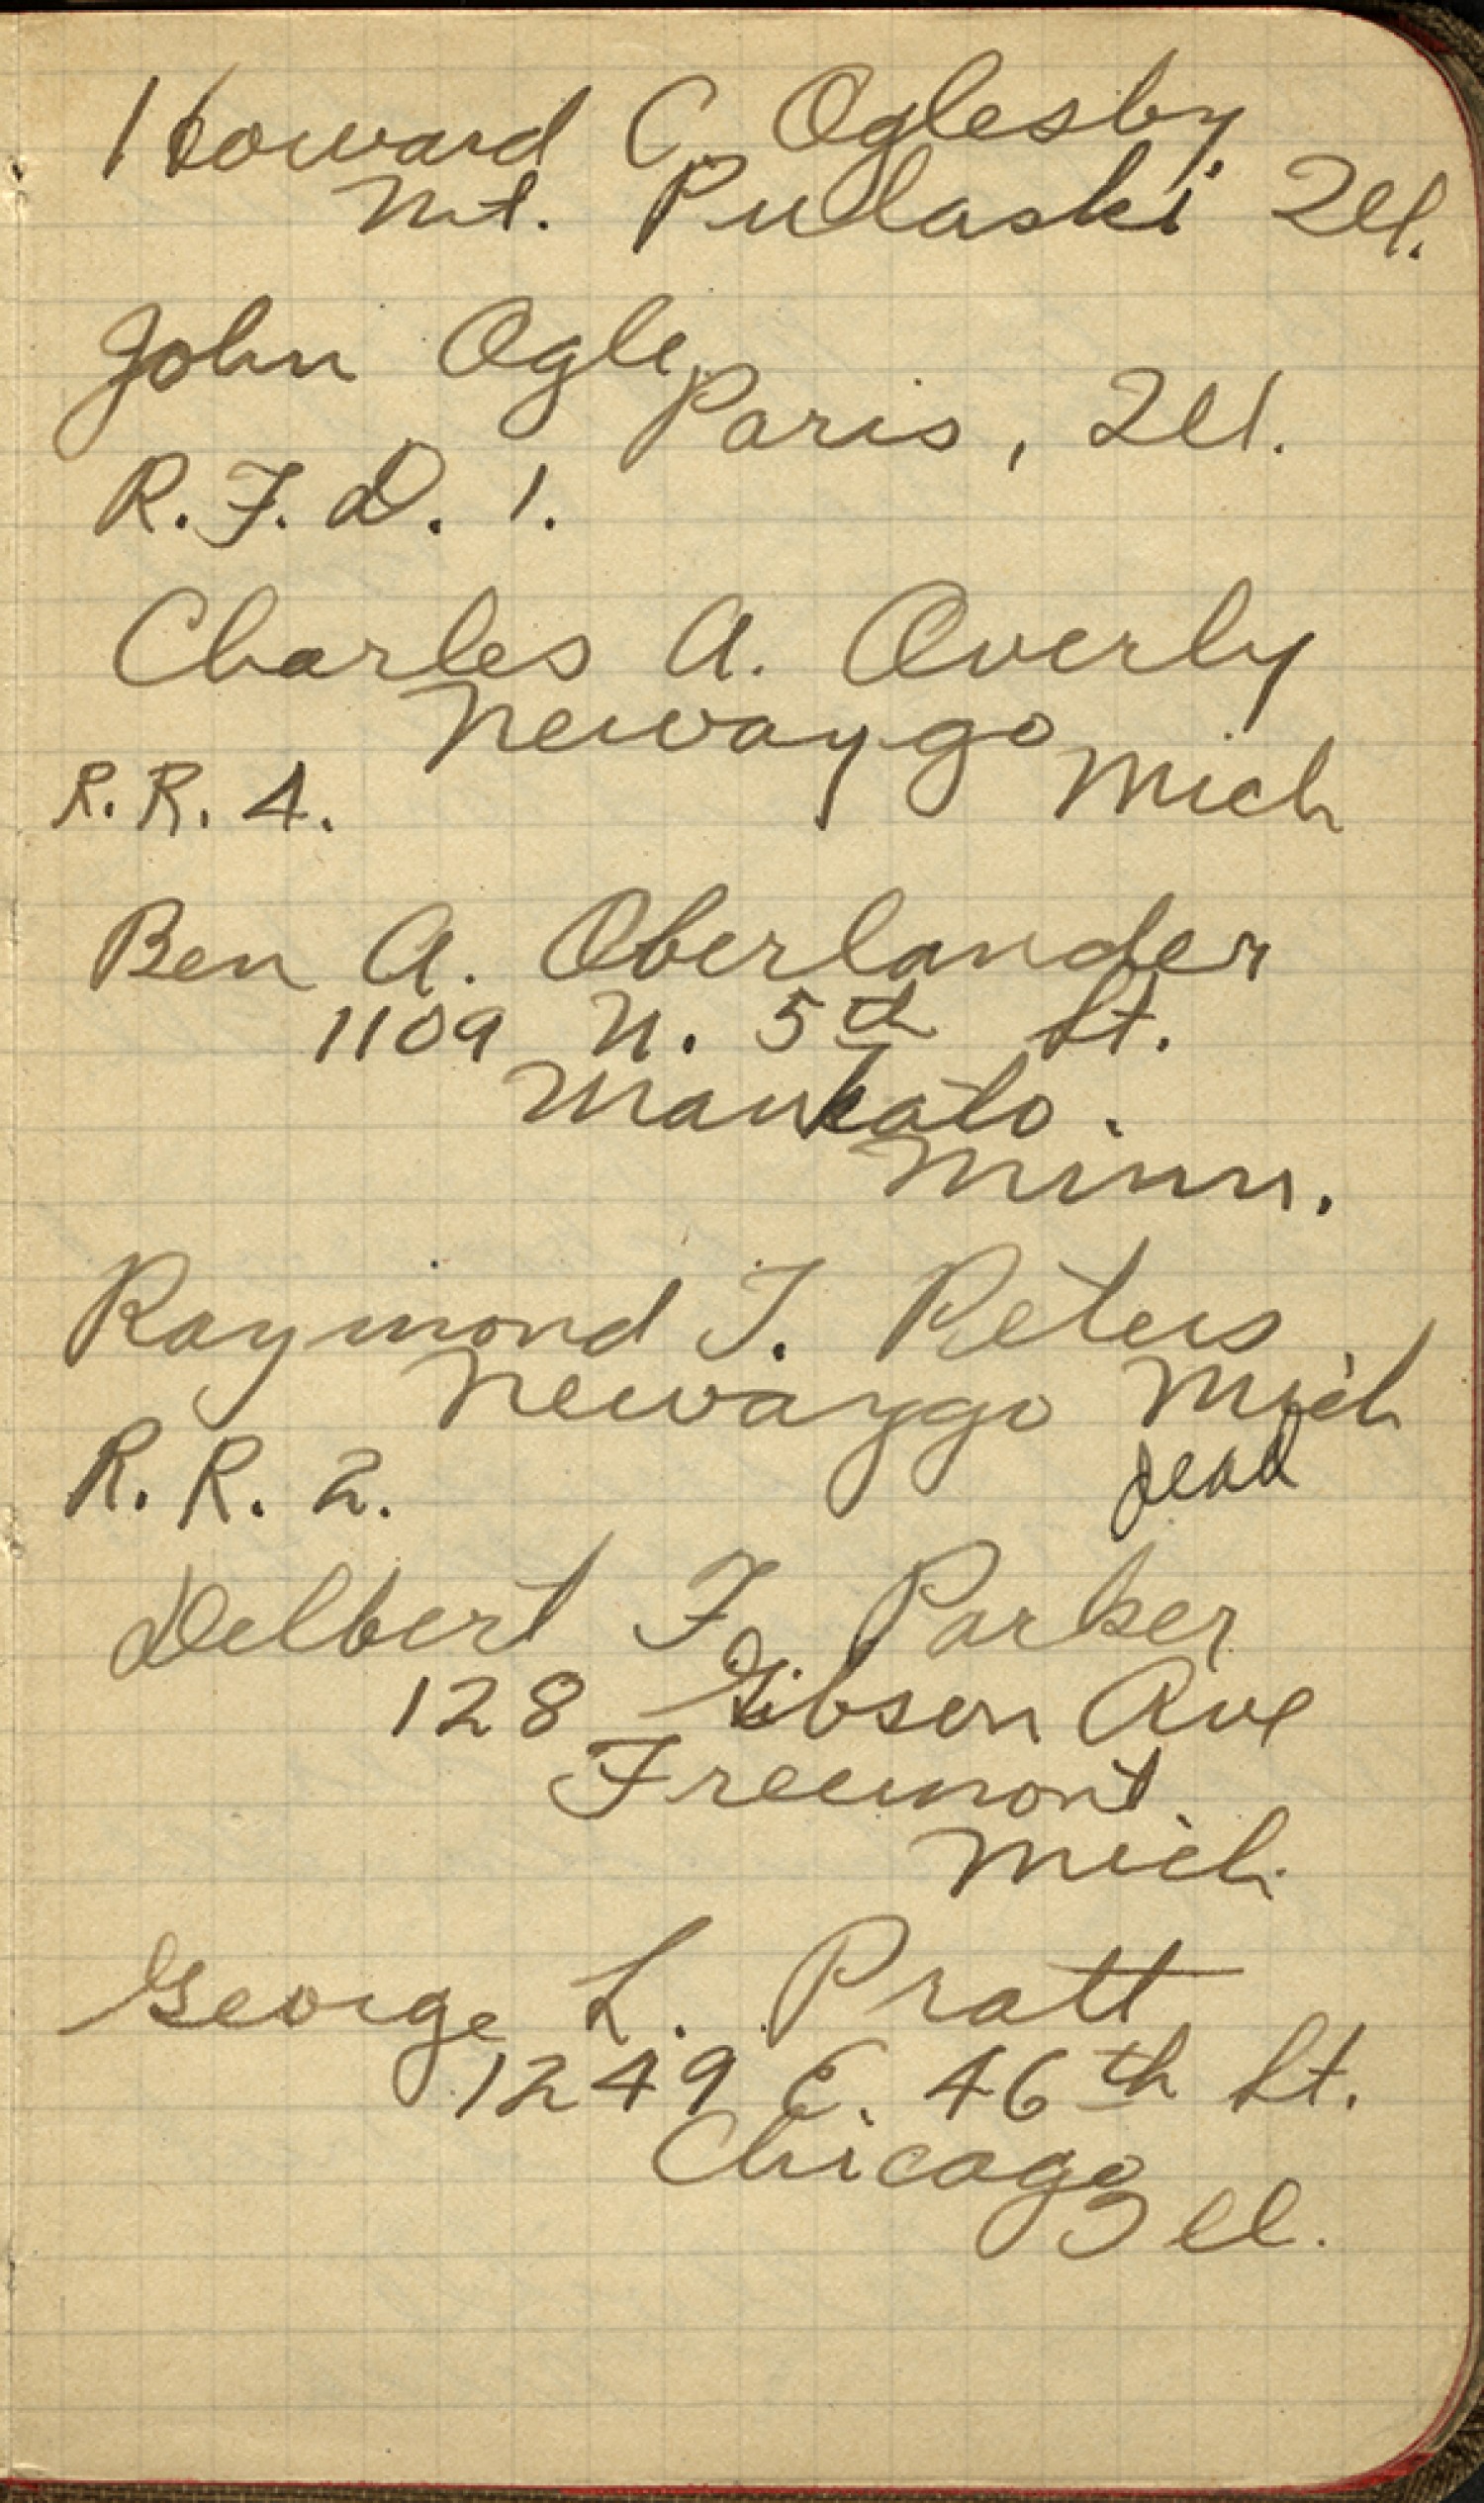 Howard C. Oglesby
Mt. Pulaski Ill.
John Ogle,
Paris, Ill.
R.F.D. 1.
Charles A. Overly
Newaygo
Mich
R.R. 4.
Ben A. Oberlander
1109 N. 5th St.
Mankato.
Minn.
Raymond T. Peters
Newaygo Mich
R.R. 2. dead
Delbert F. Parker
128 Gibson Ave
Freemont
Mich.
George L. Pratt
1249 E. 46th St.
Chicago
Ill.